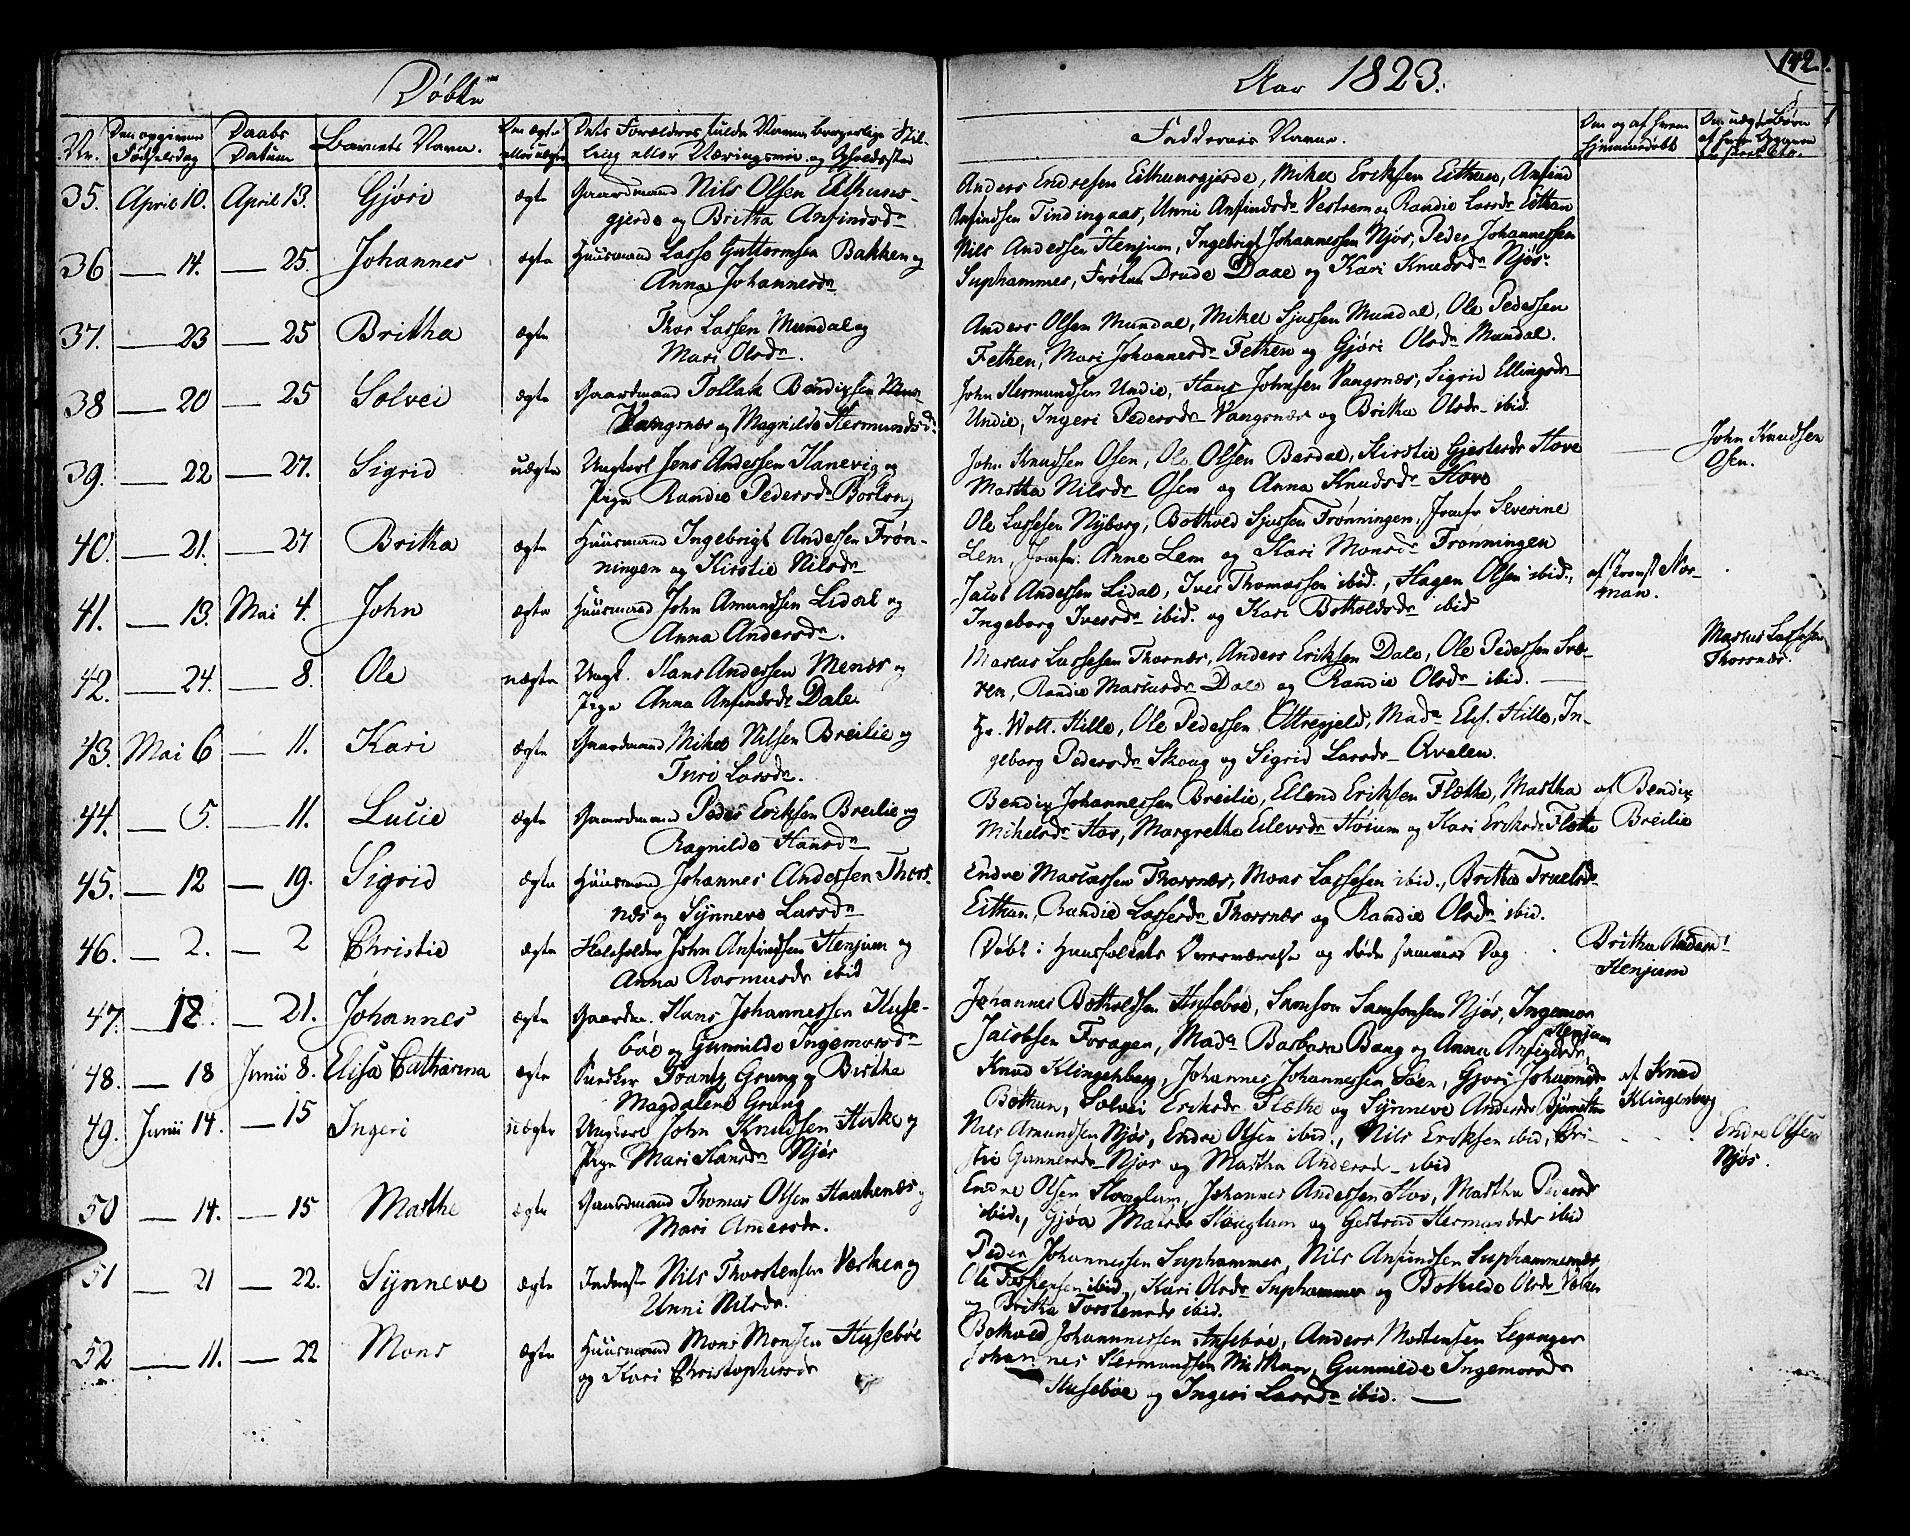 Døbte
Aar 1823.
142
Nr.
Den opgivne Fødselsdag
Daabs Datum
Barnets Navn.
Dets Forældres fulde Navne, borgerlige Stilling eller Næringsvei og Opholdssted
Faddernes Navne.
35. April 10. April 13. Gjøri ægte Gaardmand Nils Olsen Eithuns-
gjerde og Britha Ansindsd
Anders Endresen Eithunsgjerde, Mikel Eriksen Eithun, Ansind
Ansindsen Tindingaas, Unni Ansindsdr Vestrem og Randie Larsdr Eithun
36 — 14. — 25. Johannes ægte Huusmand Lasse Guttormsen Bakken og
Anna Johannesdr
Nils Andersen Henjum, Ingebrigt Johannessen Njøs, Peder Johannessen
Suphammer, Frøken Drude Daae og Kari Knudsdr Njøs.
37. — 23 — 25 Britha ægte Thor Lassen Mundal og
Mari Olsdr.
Anders Olsen Mundal, Mikel Sjursen Mundal, Ole Pedersen
Fethen, Mari Johannesdr Fethen og Gjøri Olsdr Mundal.
38 — 20 — 25 Solvei ægte Gaardmand Tollak Bendixsen
Vangsnæs og Magnilde Hermundsd.
John Hermundsen Undie, Hans Johnsen Vangsnæs, Sigrid Ellingsdr
Undie, Ingeri Pedersdr Vangsnæs og Britha Olsdr ibid.
39. — 22 — 27. Sigrid uægte Ungkarl Jens Andersen Hanevig og
Pige Randie Pedersdr
John Knudsen Osen, Ole Olsen Bardal, Kirstie Gjestsdr Hove
Martha Nilsdr Osen og Anna Knudsdr Hove
John Knudsen
Osen.
40. — 21. — 27 Britha ægte Huusmand Ingebrigt Andersen Frøn-
ningen og Kirstie Nilsdr
Ole Lassesen Nyborg, Bothold Sjursen Frønningen, Jomfr Severine
Lem, Jomfr. Anne Lem og Kari Monsdr Frønningen
41. — 13. Mai 4. John ægte Huusmand John Amundsen Lidal og
Anna Andersdr.
Jacob Andersen Lidal, Iver Thomassen ibid., Hagen Olsen ibid.,
Ingeborg Iversdr ibid. og Kari Botholdsdr ibid
af Provst Nor-
man.
42. — 24. — 8. Ole uægte Ungk. Hans Andersen Menæs og
Pige Anna Ansindsdr Dale.
Marcus Lassesen Thorsnæs, Anders Eriksen Dale, Ole Pedersen Svæ-
ren, Randie Marcusdr Dale og Randie Olsdr ibid. —
Marcus Lassesen
Thorsnæs.
43. Mai 6 — 11. Kari ægte Gaardmand Mikel Nilsen Breilie og
Turi Larsdr.
Hr. Wolt. Hille, Ole Pedersen Ottregjeld, Mad. Els. Hille, In-
geborg Pedersdr Skoug og Sigrid Larsdr Qvalen.
44. — 5. — 11. Lucie ægte Gaardmand Peder Eriksen Breilie og
Ragnilde Hansdr
Bendix Johannessen Breilie, Ellend Eriksen Flæthe, Martha
Mikelsdr Hov, Margrethe Elevsdr Hoium og Kari Eriksdr Flæthe
af Bendix
Breilie
45. — 12 — 19. Sigrid ægte Huusmand Johannes Andersen Thors-
næs og Synneve Larsdr
Endre Marcussen Thorsnæs, Mons Lassesen ibid., Britha Truelsdr
Eithun, Randie Lassesdr Thorsnæs og Randie Olsdr ibid.
46. — 2. — 2 Christie ægte John Ansindsen Henjum og
Anna Rasmusdr ibid
Døbt i Huusfolkets Overværelse og døde samme Dag
Britha Andersd
Henjum
47. — 12. — 21. Johannes ægte Gaardm. Hans Johannessen Huse-
bøe og Gunnilde Ingemorsdr
Johannes Botholdsen Husebøe, Samson Samsonsen Njøs, Ingemor
Jacobsen Foragen, Mad. Barbara Bang og Anna Ansindsdr
Henjum
48. — 18 Junii 8. Elisa Catharina ægte Frantz Grung og Birthe
Magdalene Grung
Knud Klingenberg, Johannes Johannessen Søen, Gjori Johannesdr
Bothun, Solvei Eriksdr Flæthe og Synneve Andersdr
af Knud
Klingenberg
49. Junii 14. — 15 Ingeri uægte Ungkarl John Knudsen og
Pige Mari Hansdr Njøs
Nils Amundsen Njøs, Endre Olsen ibid., Nils Eriksen ibid, Chri-
stie Gunnersdr Njøs og Martha Andersdr ibid
Endre Olsen
Njøs.
50 — 14. — 15 Marthe ægte Gaardmand Thomas Olsen Haukenæs og
Mari Andersdr.
Endre Olsen Houglum, Johannes Andersen Hov, Martha Pedersdr
ibid., Gjøa Matsdr Houglum og Gertrud Hermundsdr ibid
51 — 21 — 22. Synneve ægte Inderste Nils Thorstensen Værken og
Unni Nilsdr.
Peder Johannessen Suphammer, Nils Ansindsen Suphammer,
Ole ibid, Kari Olsdr Suphammer og Bothilde Olsdr
og Britha Torstensdr ibid.
52 — 11. — 22 Mons ægte Huusmand Mons Monsen Husebøe
og Kari Christophersdr
Bothold Johannessen Husebøe, Anders Mortensen Leganger
Johannes Hermundsen, Gunnilde Ingemorsdr
Husebøe og Ingeri Larsdr ibid. —